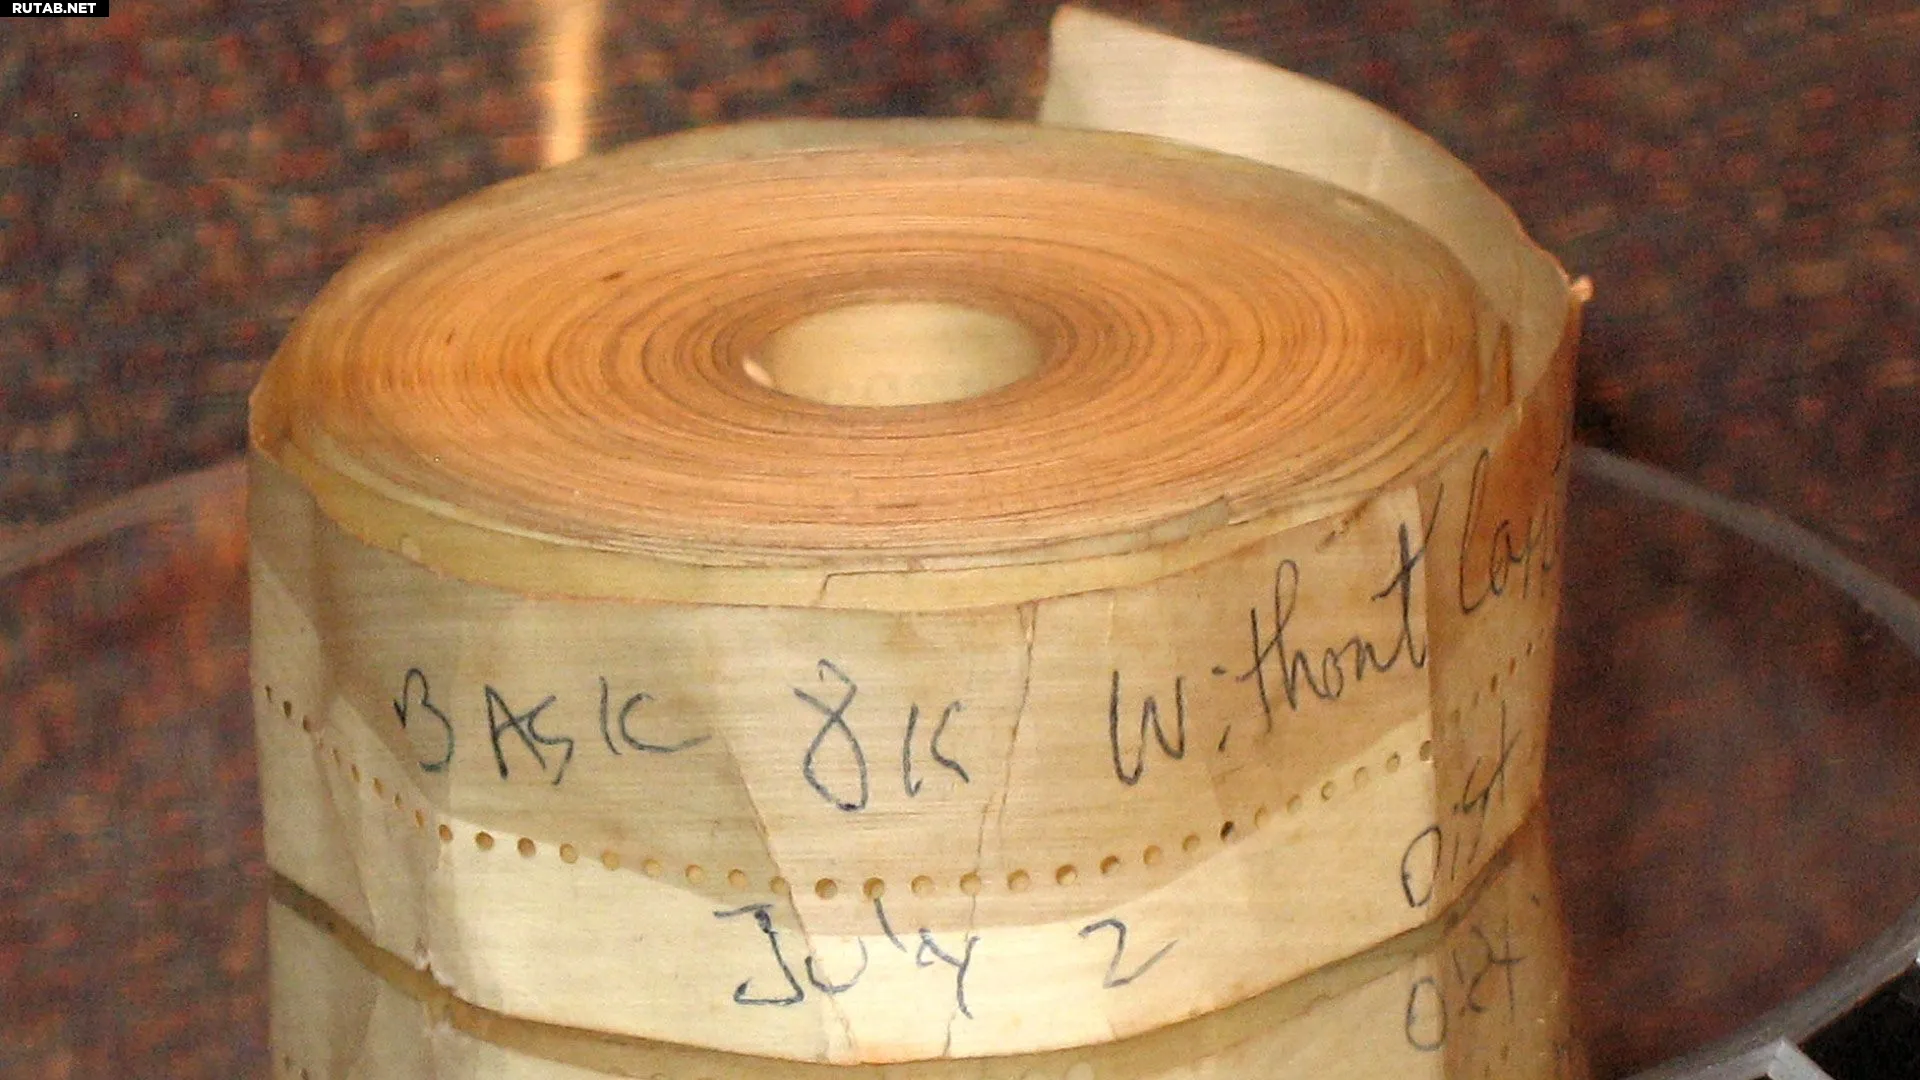 RUTAB.NET
BASIC 8K Without
July 2